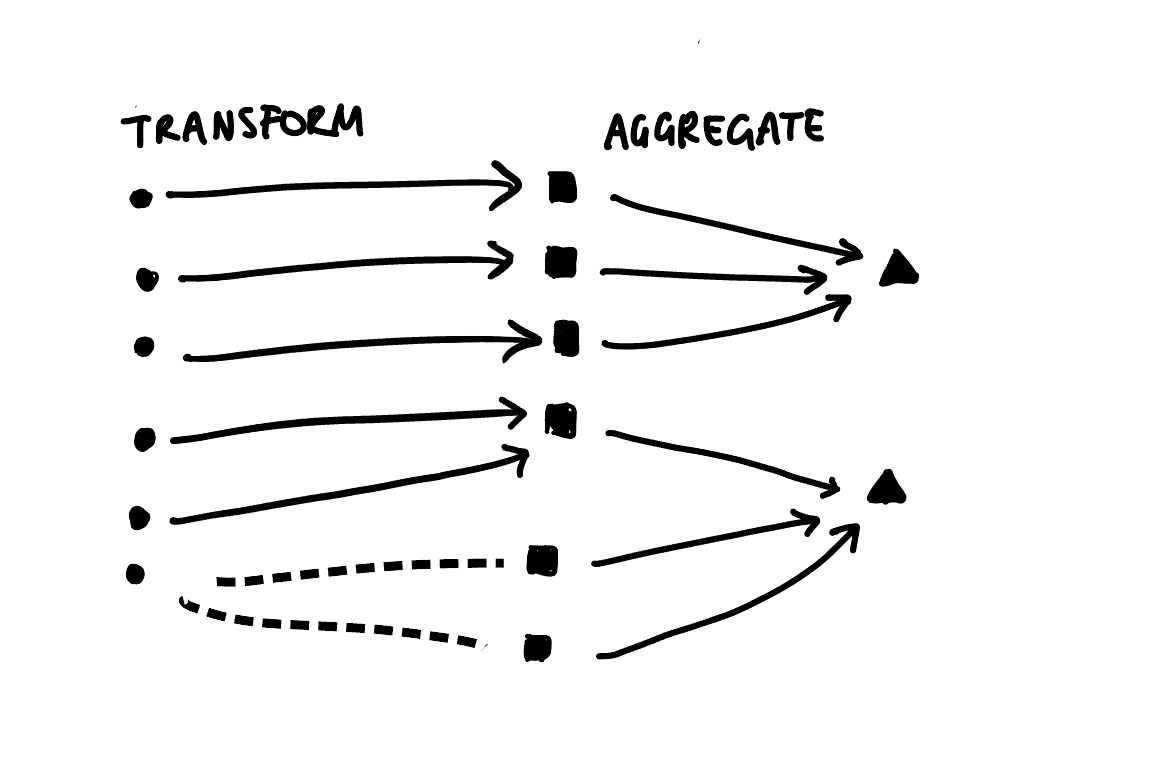 TRANSFORM
AGGREGATE